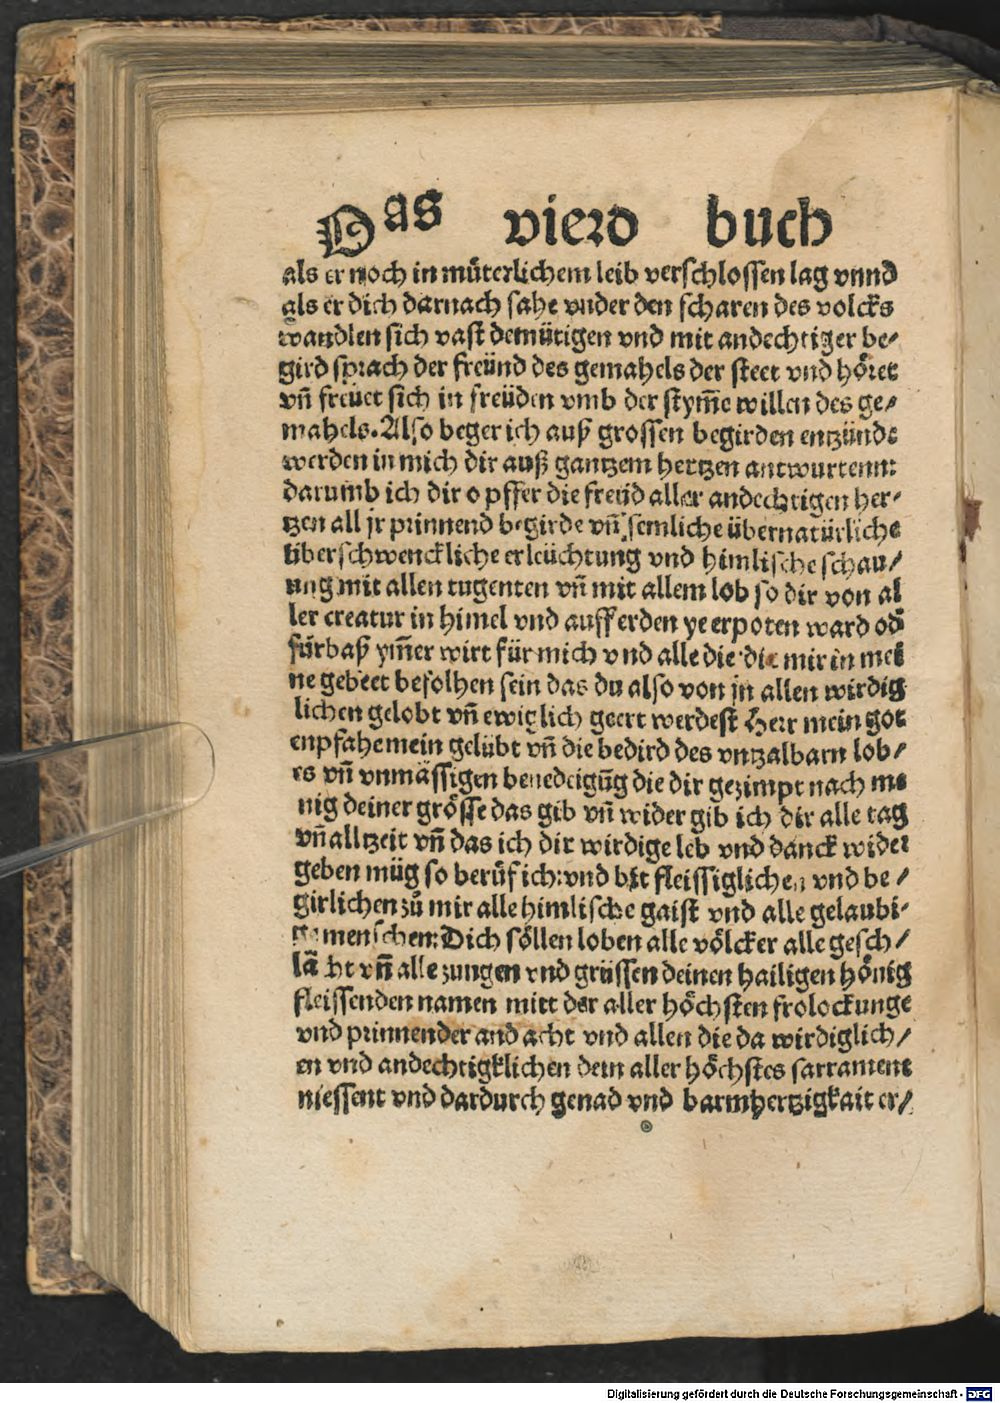 Das vierd buch
als er noch in můterlichem leib verschlossen lag vnnd
als er dich darnach sahe vnder den scharen des volcks
wandlen sich vast demütigen vnd mit andechtiger be⸗
gird sprach der freünd des gemahels der steet vnd höret
vñ freuet sich in freüden vmb der stym̃e willen des ge⸗
mahels. Also beger ich auß grossen begirden entzünde
werden in mich dir auß gantzem hertzen antwurtenn:
darumb ich dir opffer die freüd aller andechtigen her⸗
tzen all jr prinnend begirde vñ semliche übernatürliche
überschwenckliche erleüchtung vnd himlische schau⸗
ung mit allen tugenten vñ mit allem lob so dir von al
ler creatur in himel vnd auff erden ye erpoten ward od̄
fürbaß ym̃er wirt für mich vnd alle die die mir in mei
ne gebeet befolhen sein das du also von jn allen wirdig
lichen gelobt vñ ewiglich geert werdest Herr mein got
enpfahe mein gelübt vñ die bedird des vntzalbarn lob⸗
es vñ vnmässigen benedeigũg die dir gezimpt nach me
nig deiner grösse das gib vñ wider gib ich dir alle tag
vñ alltzeit vñ das ich dir wirdige leb vnd danck wider
geben müg so berůf ich: vnd bit fleissiglichen vnd be⸗
girlichen zů mir alle himlische gaist vnd alle gelaubi⸗
ge menschen: Dich söllen loben alle völcker alle gesch⸗
lächt vñ alle zungen vnd grüssen deinen hailigen hönig
fleissenden namen mitt der aller höchsten frolockunge
vnd prinnender andacht vnd allen die da wirdiglich⸗
en vnd andechtigklichen dein aller höchstes sarrament
niessent vnd dardurch genad vnd barmhertzigkait er⸗
Digitalisierung gefördert durch die Deutsche Forschungsgemeinschaft - DFG